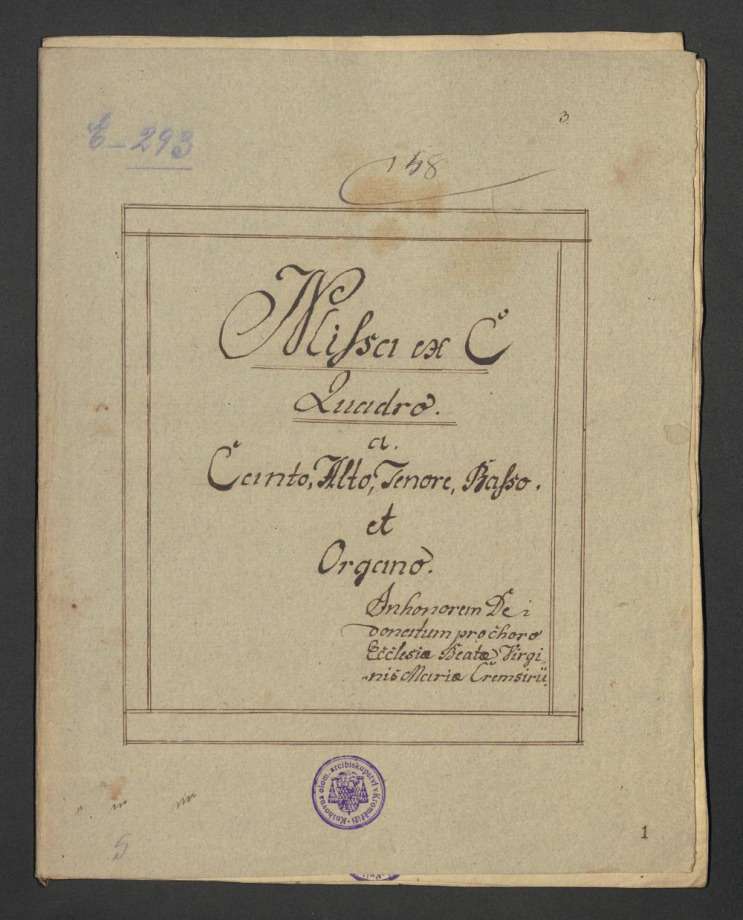 3
E-293
158
Missa ex C
Quadro.
a.
Canto, Alto, Tenore, Basso.
et
Organo.
In honorem Dei
donatum pro choro
Ecclesiæ Beatæ Virgi
nis Mariæ Cremsirii
Knihovna olom. arcibiskupství v Kroměříži
5
1